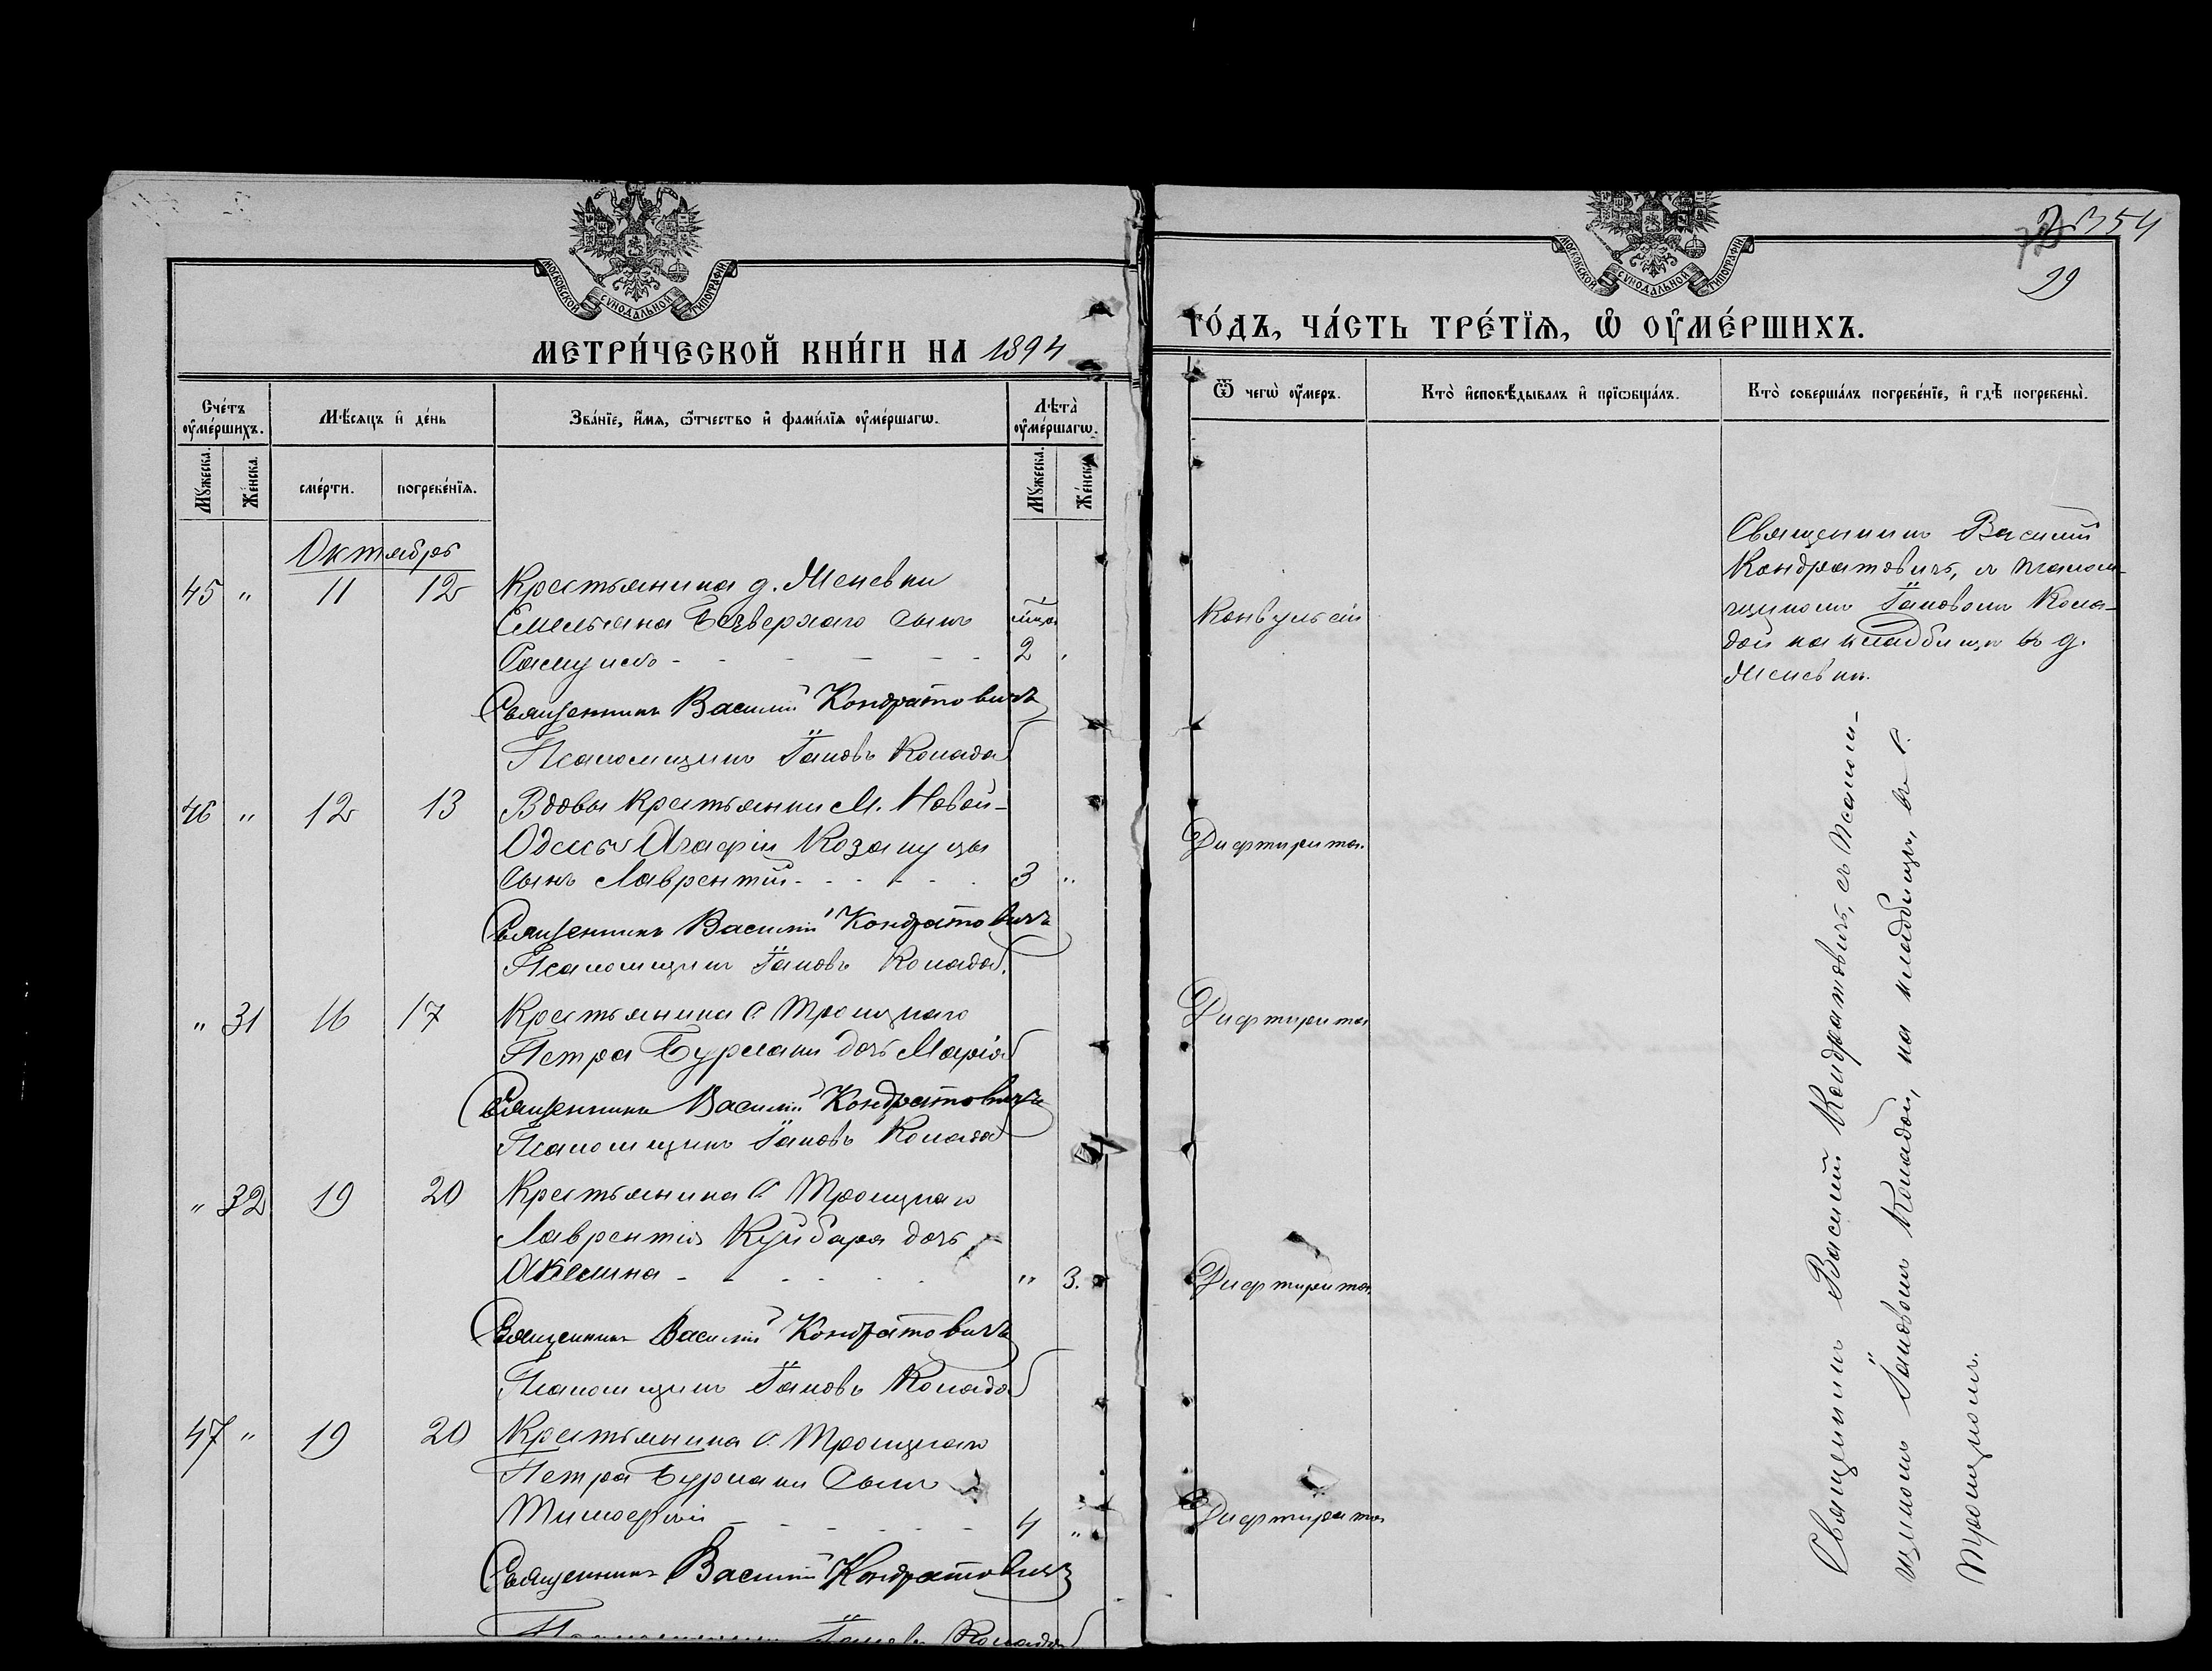 МОСКОВСКОЙ СѴНОДАЛЬНОЙ ТИПОГРАФІИ
МЕТРИ́ЧЕСКОЙ КНИ́ГИ НА 1894
Сче́тъ ᲂу҆ме́ршихъ.
Мѣ́сяцъ и҆ де́нь
Зва́нїе, и҆́мѧ, ѻ҆́тчество и҆ фами́лїѧ ᲂу҆ме́ршагѡ.
Лѣта̀ ᲂу҆ме́ршагѡ.
Мꙋ́жеска.
Же́нска.
сме́рти.
погребе́нїѧ.
Мꙋ́жеска.
Же́нска.
Октябрь
45 " 11 12 Крестьянина д. Меневки
Емельяна Безверхаго сынъ мѣсяц.
Самуилъ - - - - - - 2 "
Священникъ Василій Кондратовичъ
Псаломщикъ Іаковъ Колада
46 " 12 13 Вдовы крестьянки М. Новой-
Одессы Агафіи Козануцы
сынъ Лаврентій - - - - - 3 "
Священникъ Василій Кондратовичъ
Псаломщикъ Іаковъ Колада.
" 31 16 17 Крестьянина с. Троицкаго
Петра Бурлаки дочь Марія
Священникъ Василій Кондратовичъ
Псаломщикъ Іаковъ Колада
" 32 19 20 Крестьянина с. Троицкаго
Лаврентія Куйбара дочь
Акилина - - - - - " 3.
Священникъ Василій Кондратовичъ
Псаломщикъ Іаковъ Колада
47 " 19 20 Крестьянина с. Троицкаго
Петра Бурлаки сынъ
Тимофей - - - - - - 4 "
Священникъ Василій Кондратовичъ
Псаломщикъ Іаковъ Колада
МОСКОВСКОЙ СѴНОДАЛЬНОЙ ТИПОГРАФІИ
354
29
ГО́ДЪ, ЧА́СТЬ ТРЕ́ТЇѦ, Ѡ҆ ОУ҆МЕ́РШИХЪ.
Ѿ чегѡ̀ ᲂу҆́меръ.
Кто̀ и҆сповѣ́дывалъ и҆ прїѡбща́лъ.
Кто̀ соверша́лъ погребе́нїе, и҆ гдѣ̀ погребены̀.
Конвульсій
Священникъ Василій
Кондратовичъ, съ псалом-
щикомъ Іаковомъ Кола-
дой на кладбищѣ въ д.
Меневки.
Дифтирита.
Дифтирита
Дифтирита
Дифтирита
Священникъ Василій Кондратовичъ, съ псалом-
щикомъ Іаковомъ Коладой, на кладбищѣ въ с.
Троицкомъ.